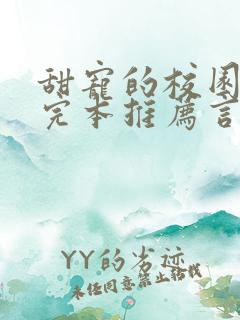 甜宠的校园
完本推荐言
YY的劣迹
未经同意禁止转载